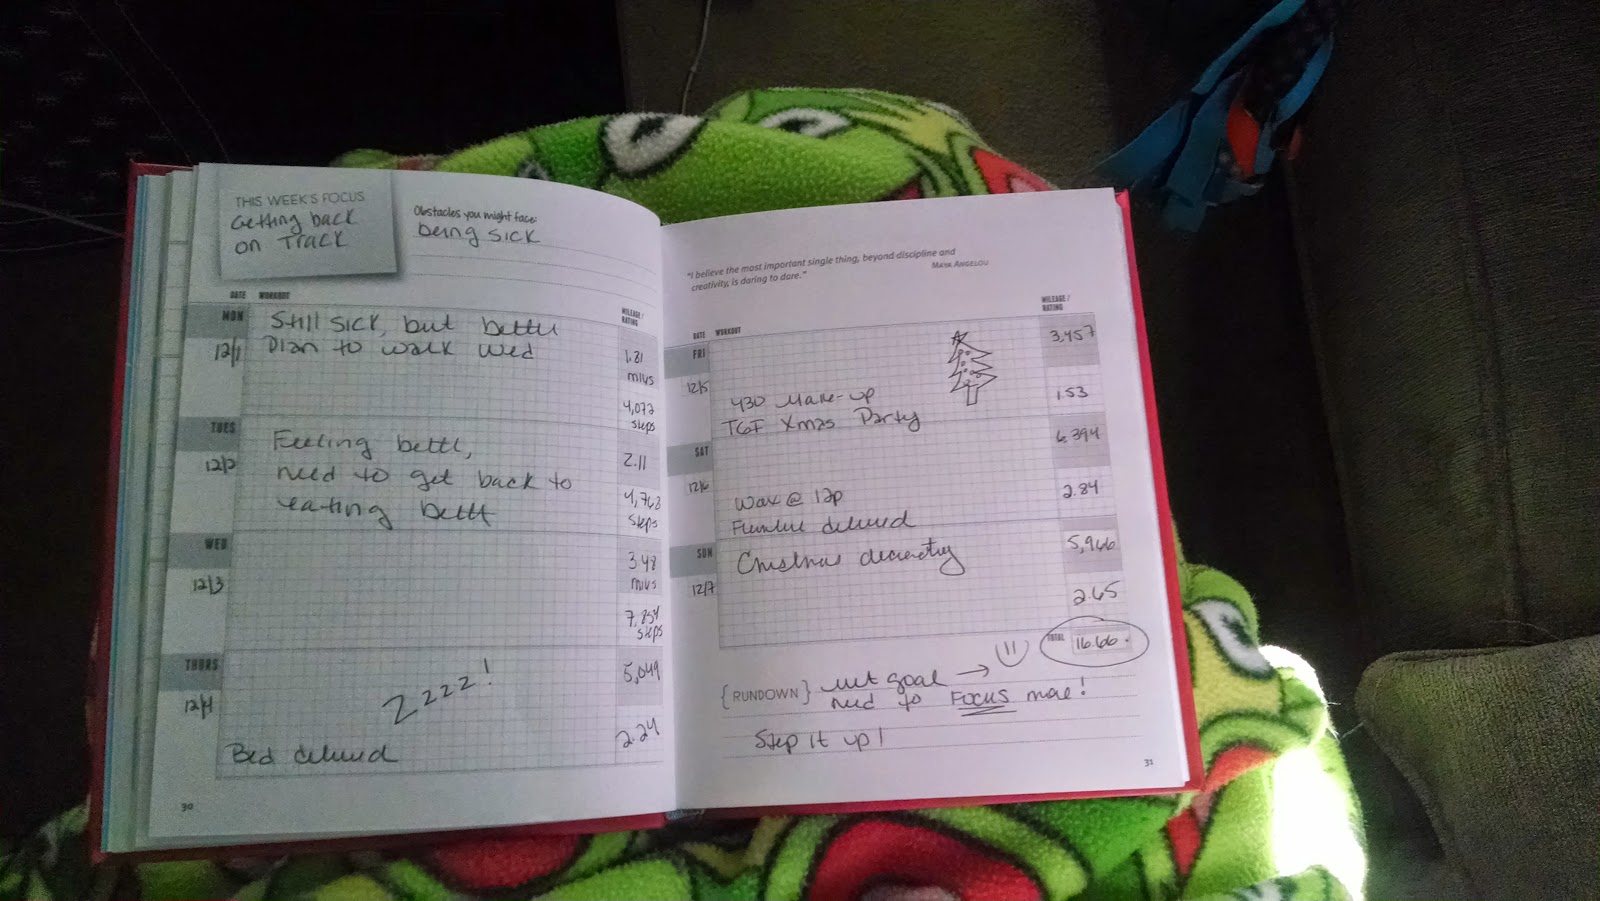 THIS WEEK'S FOCUS
Getting back
on Track
Obstacles you might face:
being sick
DATE WORKOUT MILEAGE / RATING
MON
12/1
Still sick, but better
Plan to walk Wed
1.81
miles
4,072
steps
TUES
12/2
Feeling better,
need to get back to
eating better
2.11
4,763
steps
WED
12/3
3.48
miles
7,854
steps
THURS
12/4
zzzz!
Bed delivered
5,049
2.24
30
"I believe the most important single thing, beyond discipline and
creativity, is daring to dare."
MAYA ANGELOU
DATE WORKOUT MILEAGE / RATING
FRI
12/5
430 Make-up
TGF Xmas Party
3,457
1.53
SAT
12/6
Wax @ 12p
delivered
6,394
2.84
SUN
12/7
Christmas decorating
5,966
2.65
TOTAL 16.66
{RUNDOWN} met goal →
need to FOCUS more!
Step it up!
31